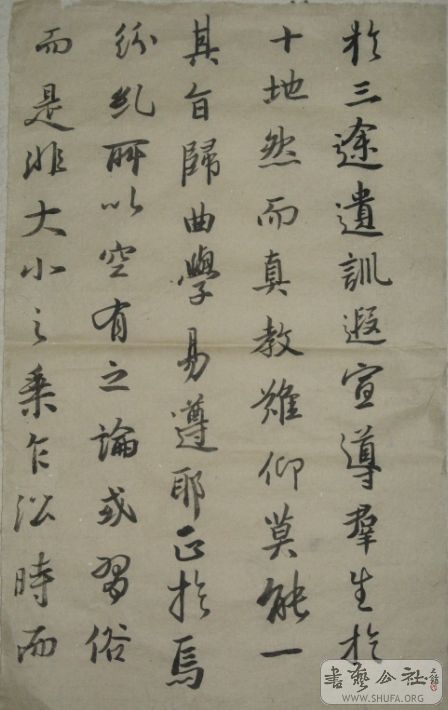 於三途遺訓遐宣導群生於
十地然而真教難仰莫能一
其旨歸曲學易遵耶正於焉
紛糺所以空有之論或習俗
而是非大小之乘乍沿時而
書藝公社
WWW.SHUFA.ORG